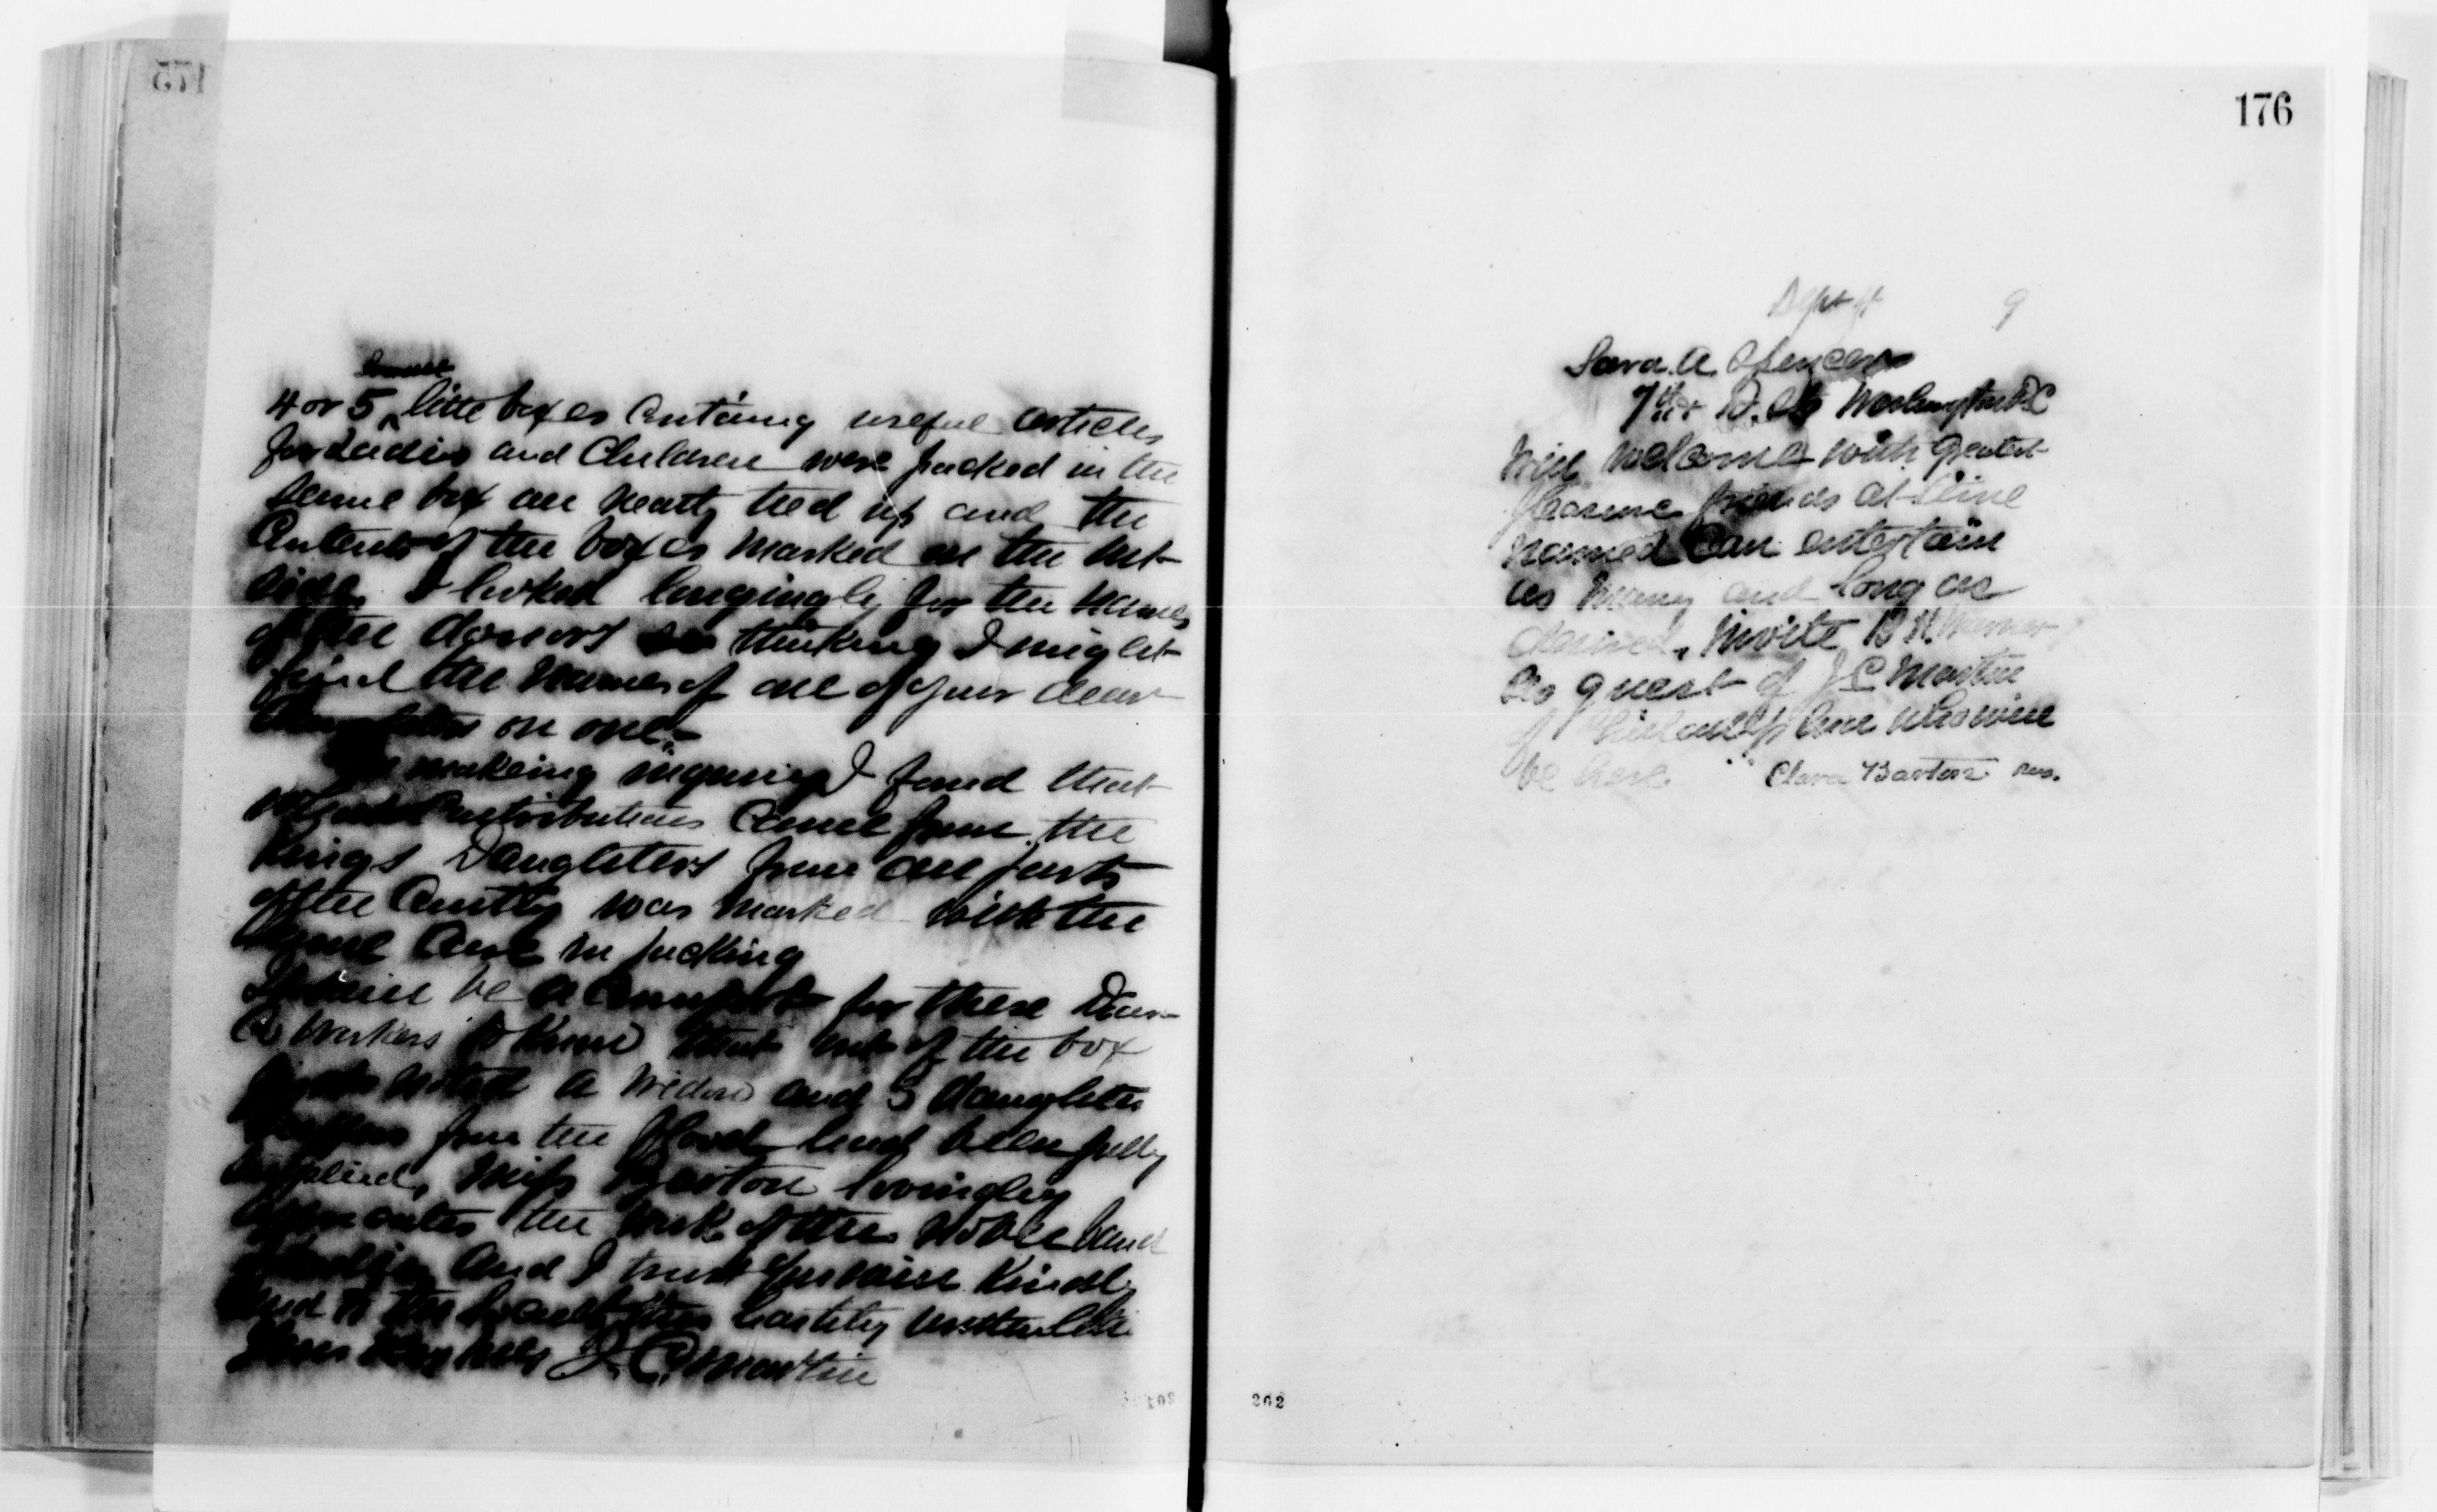 175
Small
4 or 5 little boxes Containg useful articles
for Ladies and Children were packed in the
same box all neatly tied up and the
Contents of the boxes marked on the out-
side, I looked longingly for the names
of the donors thinking I might
find the names of one of your dear
Daughters on one.
making inquiry I found that
Contributions Came from the
Kings Daughters from all parts
of the Country was marked with the
same Care in packing
It will be a Comfort for these Dear
Workers to know that out of the box
a widow and 3 daughters
from the flood had been fully
supplied, Miss Barton lovingly
the work of the noble band
And I trust you will kindly
hastily written
Yours J. C. Martin
201
176
Sept 9
Sara. A. Spencer
7th & D. Sts Washington DC
Will welcome with greatest
pleasure friends at time
named Can entertain
as many and long as
desired, Invite B H Warner
as guest of J C Martin
of Philadelphia who will
be here. Clara Barton
202